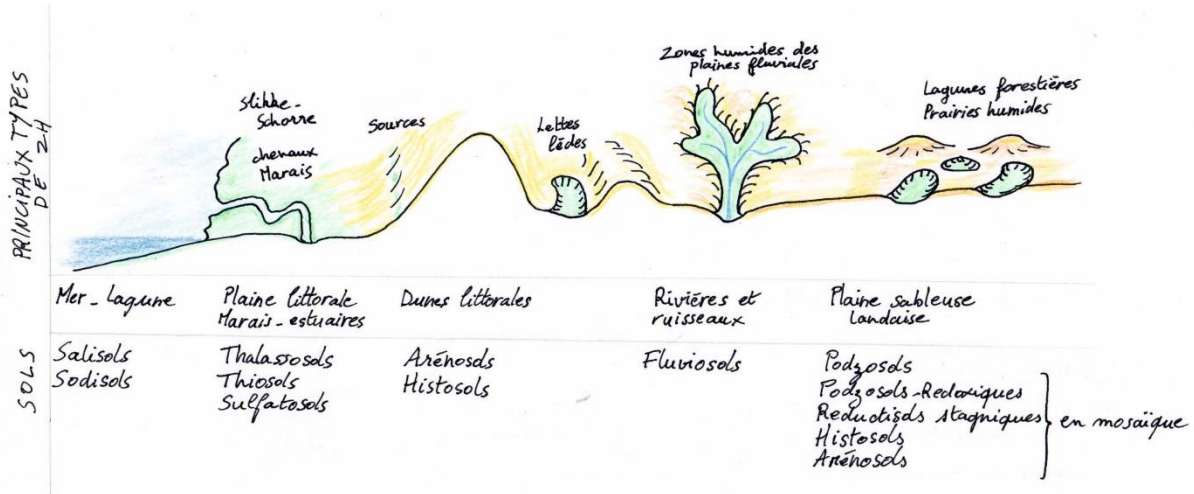 PRINCIPAUX TYPES
DE ZH
Slikke-
Schorre
chenaux
Marais
Sources
Lettes
lèdes
Zones humides des
plaines fluviales
Lagunes forestières
Prairies humides
Mer - Lagune
Plaine littorale
Marais-estuaires
Dunes littorales
Rivières et
ruisseaux
Plaine sableuse
landaise
SOLS
Salisols
Sodisols
Thalassosols
Thiosols
Sulfatosols
Arénosols
Histosols
Fluviosols
Podzosols
Podzosols-Redoxiques
Reductisols stagniques
Histosols
Arénosols
en mosaïque